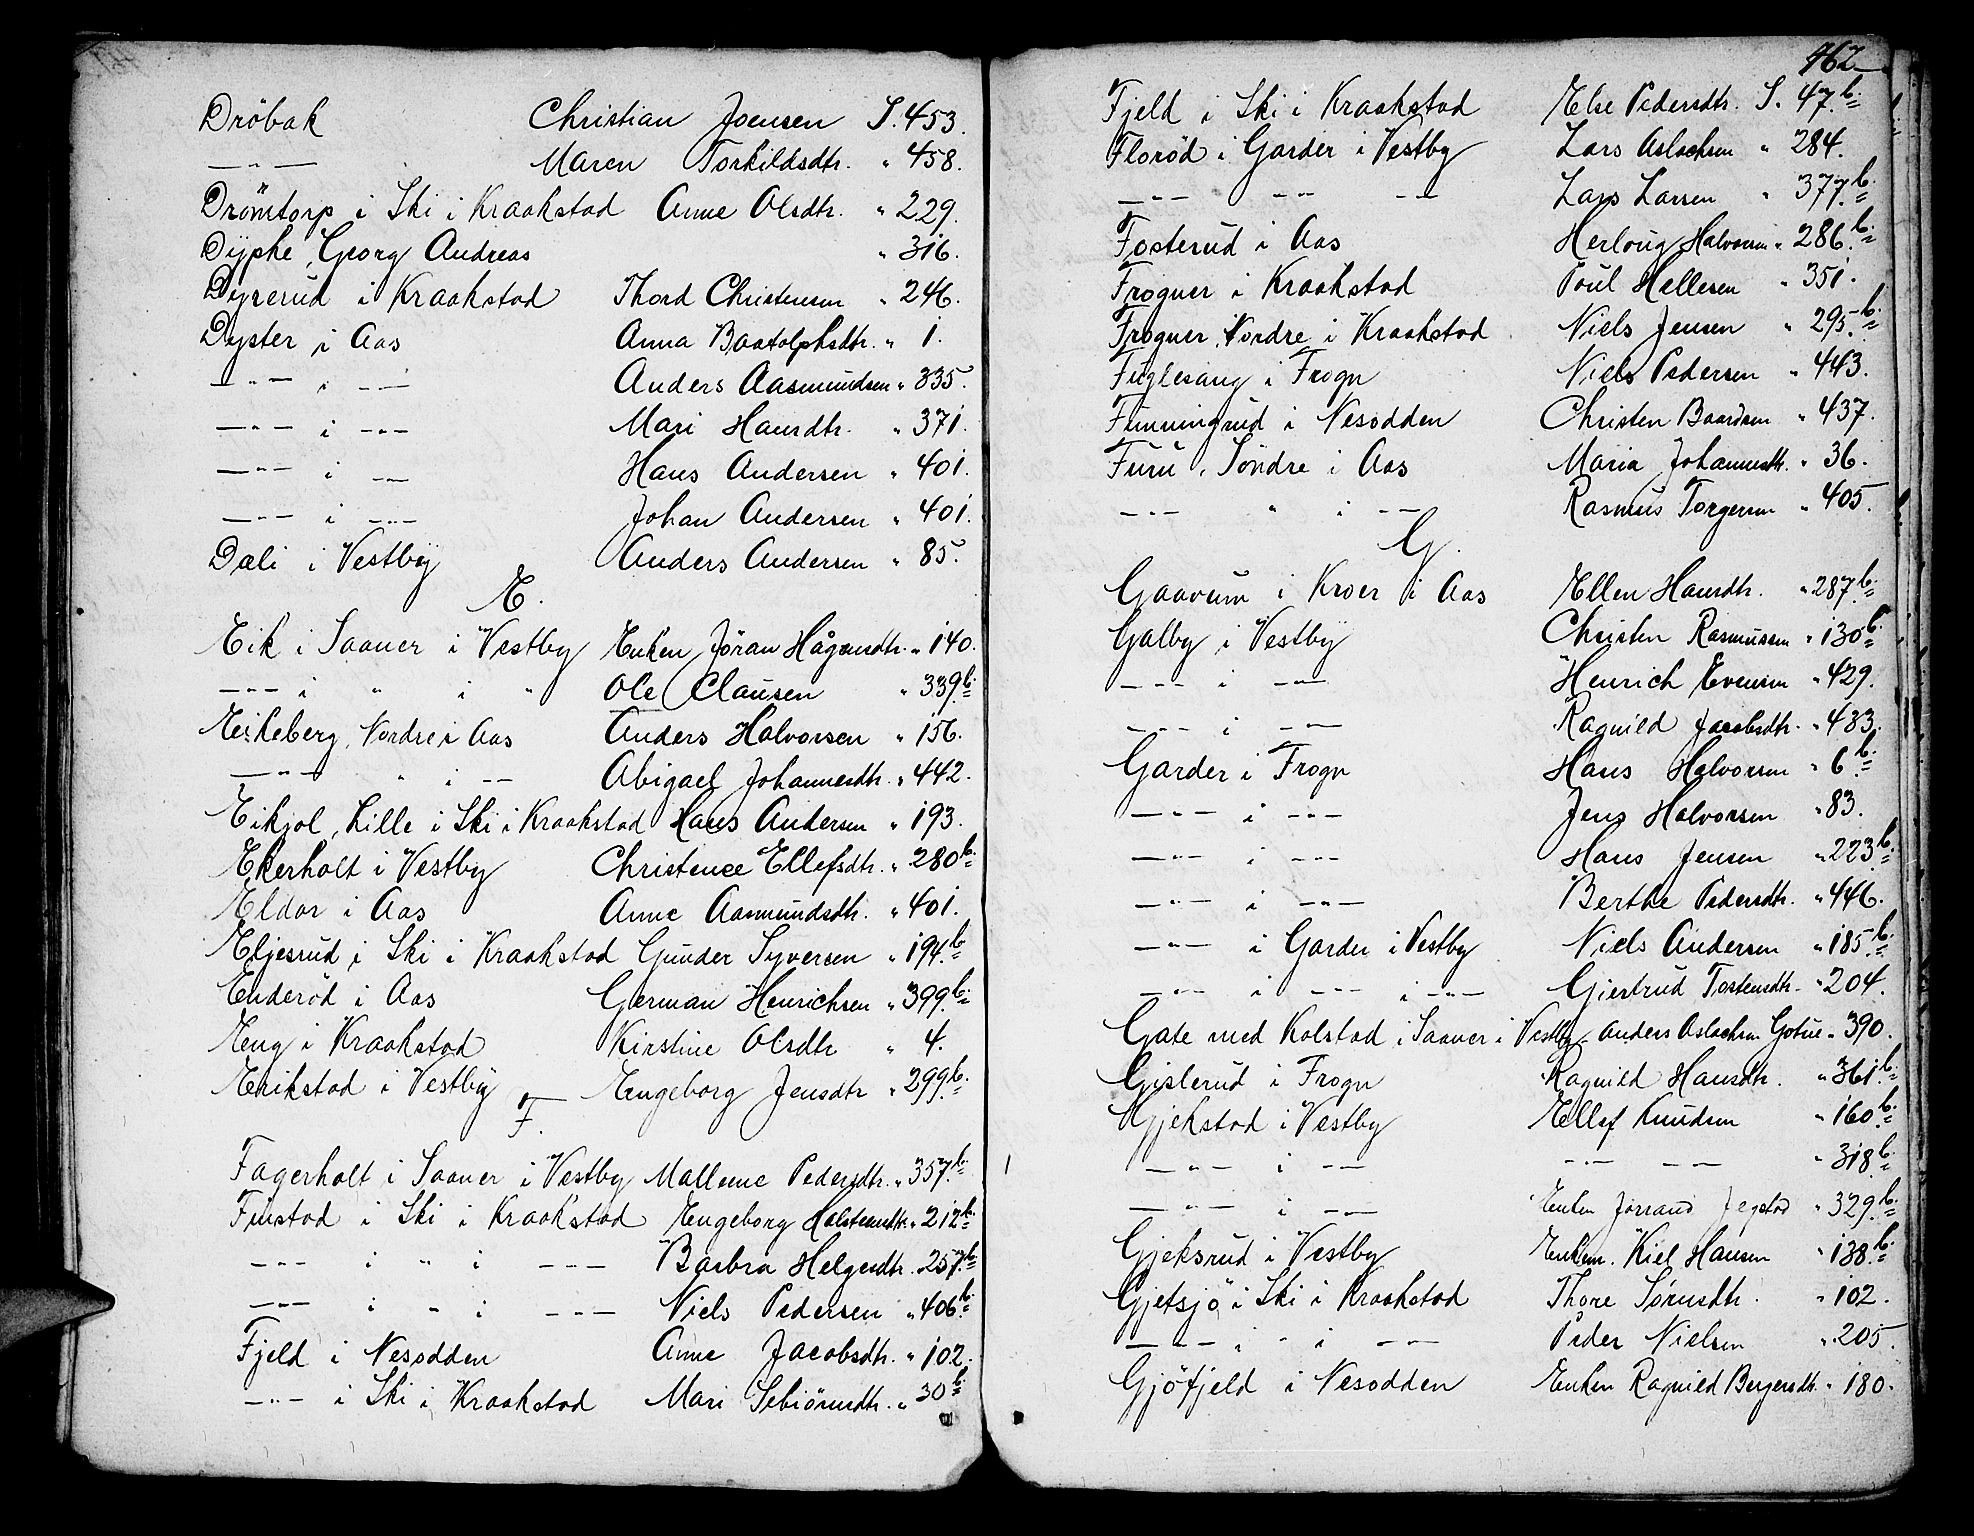 Dröbak Christian Joensen S. 453.
—„— Maren Torkildsdtr. „ 458.
Drömtorp i Ski i Kraakstad Anne Olsdtr. „ 229.
Dyphe, Georg Andreas „ 316.
Dyrerud i Kraakstad Thord Christensen „ 246.
Dyster i Aas Anna Baatolphsdtr. „ 1.
—„— i —„— Anders Aasmundsen „ 335.
—„— i —„— Mari Hansdtr. „ 371.
—„— i —„— Hans Andersen „ 401.
—„— i —„— Johan Andersen „ 401.
Dæli i Vestby Anders Andersen „ 85.
E.
Eik i Saaner i Vestby Enken Jöran Hågensdtr. „ 140.
—„— i „ i „ Ole Clausen „ 339 b.
Eikeberg, Nordre i Aas Anders Halvorsen „ 156.
—„— „ i —„— Abigael Johannesdtr. „ 442.
Eikjol, Lille i Ski i Kraakstad Hans Andersen „ 193.
Ekerholt i Vestby Christence Ellefsdtr. „ 280 b.
Eldor i Aas Anne Aasmundsdtr. „ 401.
Eljesrud i Ski i Kraakstad Gunder Syversen „ 194 b.
Enderöd i Aas German Henrichsen „ 399 b.
Eng i Kraakstad Kirstine Olsdtr „ 4.
Erikstad i Vestby Engeborg Jensdtr „ 299 b.
F.
Fagerholt i Saaner i Vestby Mallene Pedersdtr. „ 357 b.
Finstad i Ski i Kraakstad Engeborg Holstensdtr. „ 212 b.
—„— i „ i —„— Barbra Helgesdtr. 257 b.
—„— i „ i —„— Niels Pedersen „ 406 b.
Fjeld i Nesodden Anne Jacobsdtr. „ 102.
—„— i Ski i Kraakstad Mari Sebiörnsdtr. „ 30 b.
462
Fjeld i Ski i Kraakstad Else Pedersdtr. S. 47 b.
Floröd i Garder i Vestby Lars Aslachsen „ 284.
—„— —„— —„— Lars Larsen „ 377 b.
Fosterud i Aas Herloug Halvorsen „ 286 b.
Frogner i Kraakstad Poul Hellesen „ 351.
Frogner, Nordre i Kraakstad Niels Jensen „ 295 b.
Fuglesang i Frogn Niels Pedersen „ 443.
Funningrud i Nesodden Christen Baardsen „ 437.
Furu, Söndre i Aas Maria Johannesdtr. „ 36.
—„— „ i —„— Rasmus Torgersen „ 405.
G.
Gaarum i Kroer i Aas Ellen Hansdtr. „ 287 b.
Galby i Vestby Christen Rasmussen „ 130 b.
—„— i —„— Henrich Evensen „ 429.
—„— i —„— Ragnild Jacobsdtr. „ 433.
Garder i Frogn Hans Halvorsen „ 6 b.
—„— i —„— Jens Halvorsen „ 83.
—„— i —„— Hans Jensen „ 223 b.
—„— i —„— Berthe Pedersdtr. „ 446.
—„— i Garder i Vestby Niels Andersen „ 185 b.
—„— i —„— i —„— Giertrud Tostensdtr. „ 204.
Gate med Kolstad i Saaner i Vestby Anders Aslachsen Gotue „ 390.
Gislerud i Frogn Ragnild Hansdtr. „ 361 b.
Gjekstad i Vestby Ellef Knudsen „ 160 b.
—„— i —„— —„— —„— „ 318 b.
—„— i —„— Enken Jorrand Jegstad „ 329 b.
Gjeksrud i Vestby Enkem. Kiel Hansen „ 138 b.
Gjetsjö i Ski i Kraakstad Thore Sörensdtr. „ 102.
—„— i „ i —„— Peder Nielsen „ 205.
Gjöfjeld i Nesodden Enken Ragnild Bergersdtr. „ 180.